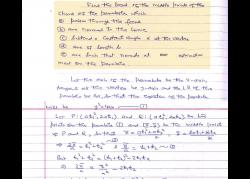 Find the locus of the middle points of the
chords of the parabola which
① passes through the focus
② are normal to the curve
③ subtend a constant angle α at the vertex
④ are of length l
⑤ are such that normals at
meet on the parabola.
Let the axis of the parabola be the x-axis,
tangent at the vertex be y-axis and the LR of the
parabola be 4a, so that the equation of the parabola
will be y²=4ax — ①
Let P: (at₁², 2at₁) and Q: (at₂², 2at₂) be two
points on the parabola ① and (x̄, ȳ) be the middle point
of P and Q, so that x̄ = (at₁²+at₂²)/2, ȳ = (2at₁+2at₂)/2
⇒ 2x̄/a = t₁²+t₂² — ② ȳ/a = t₁+t₂ — ③
But t₁²+t₂² = (t₁+t₂)² − 2t₁t₂
⇒ 2x̄/a = ȳ²/a² − 2t₁t₂